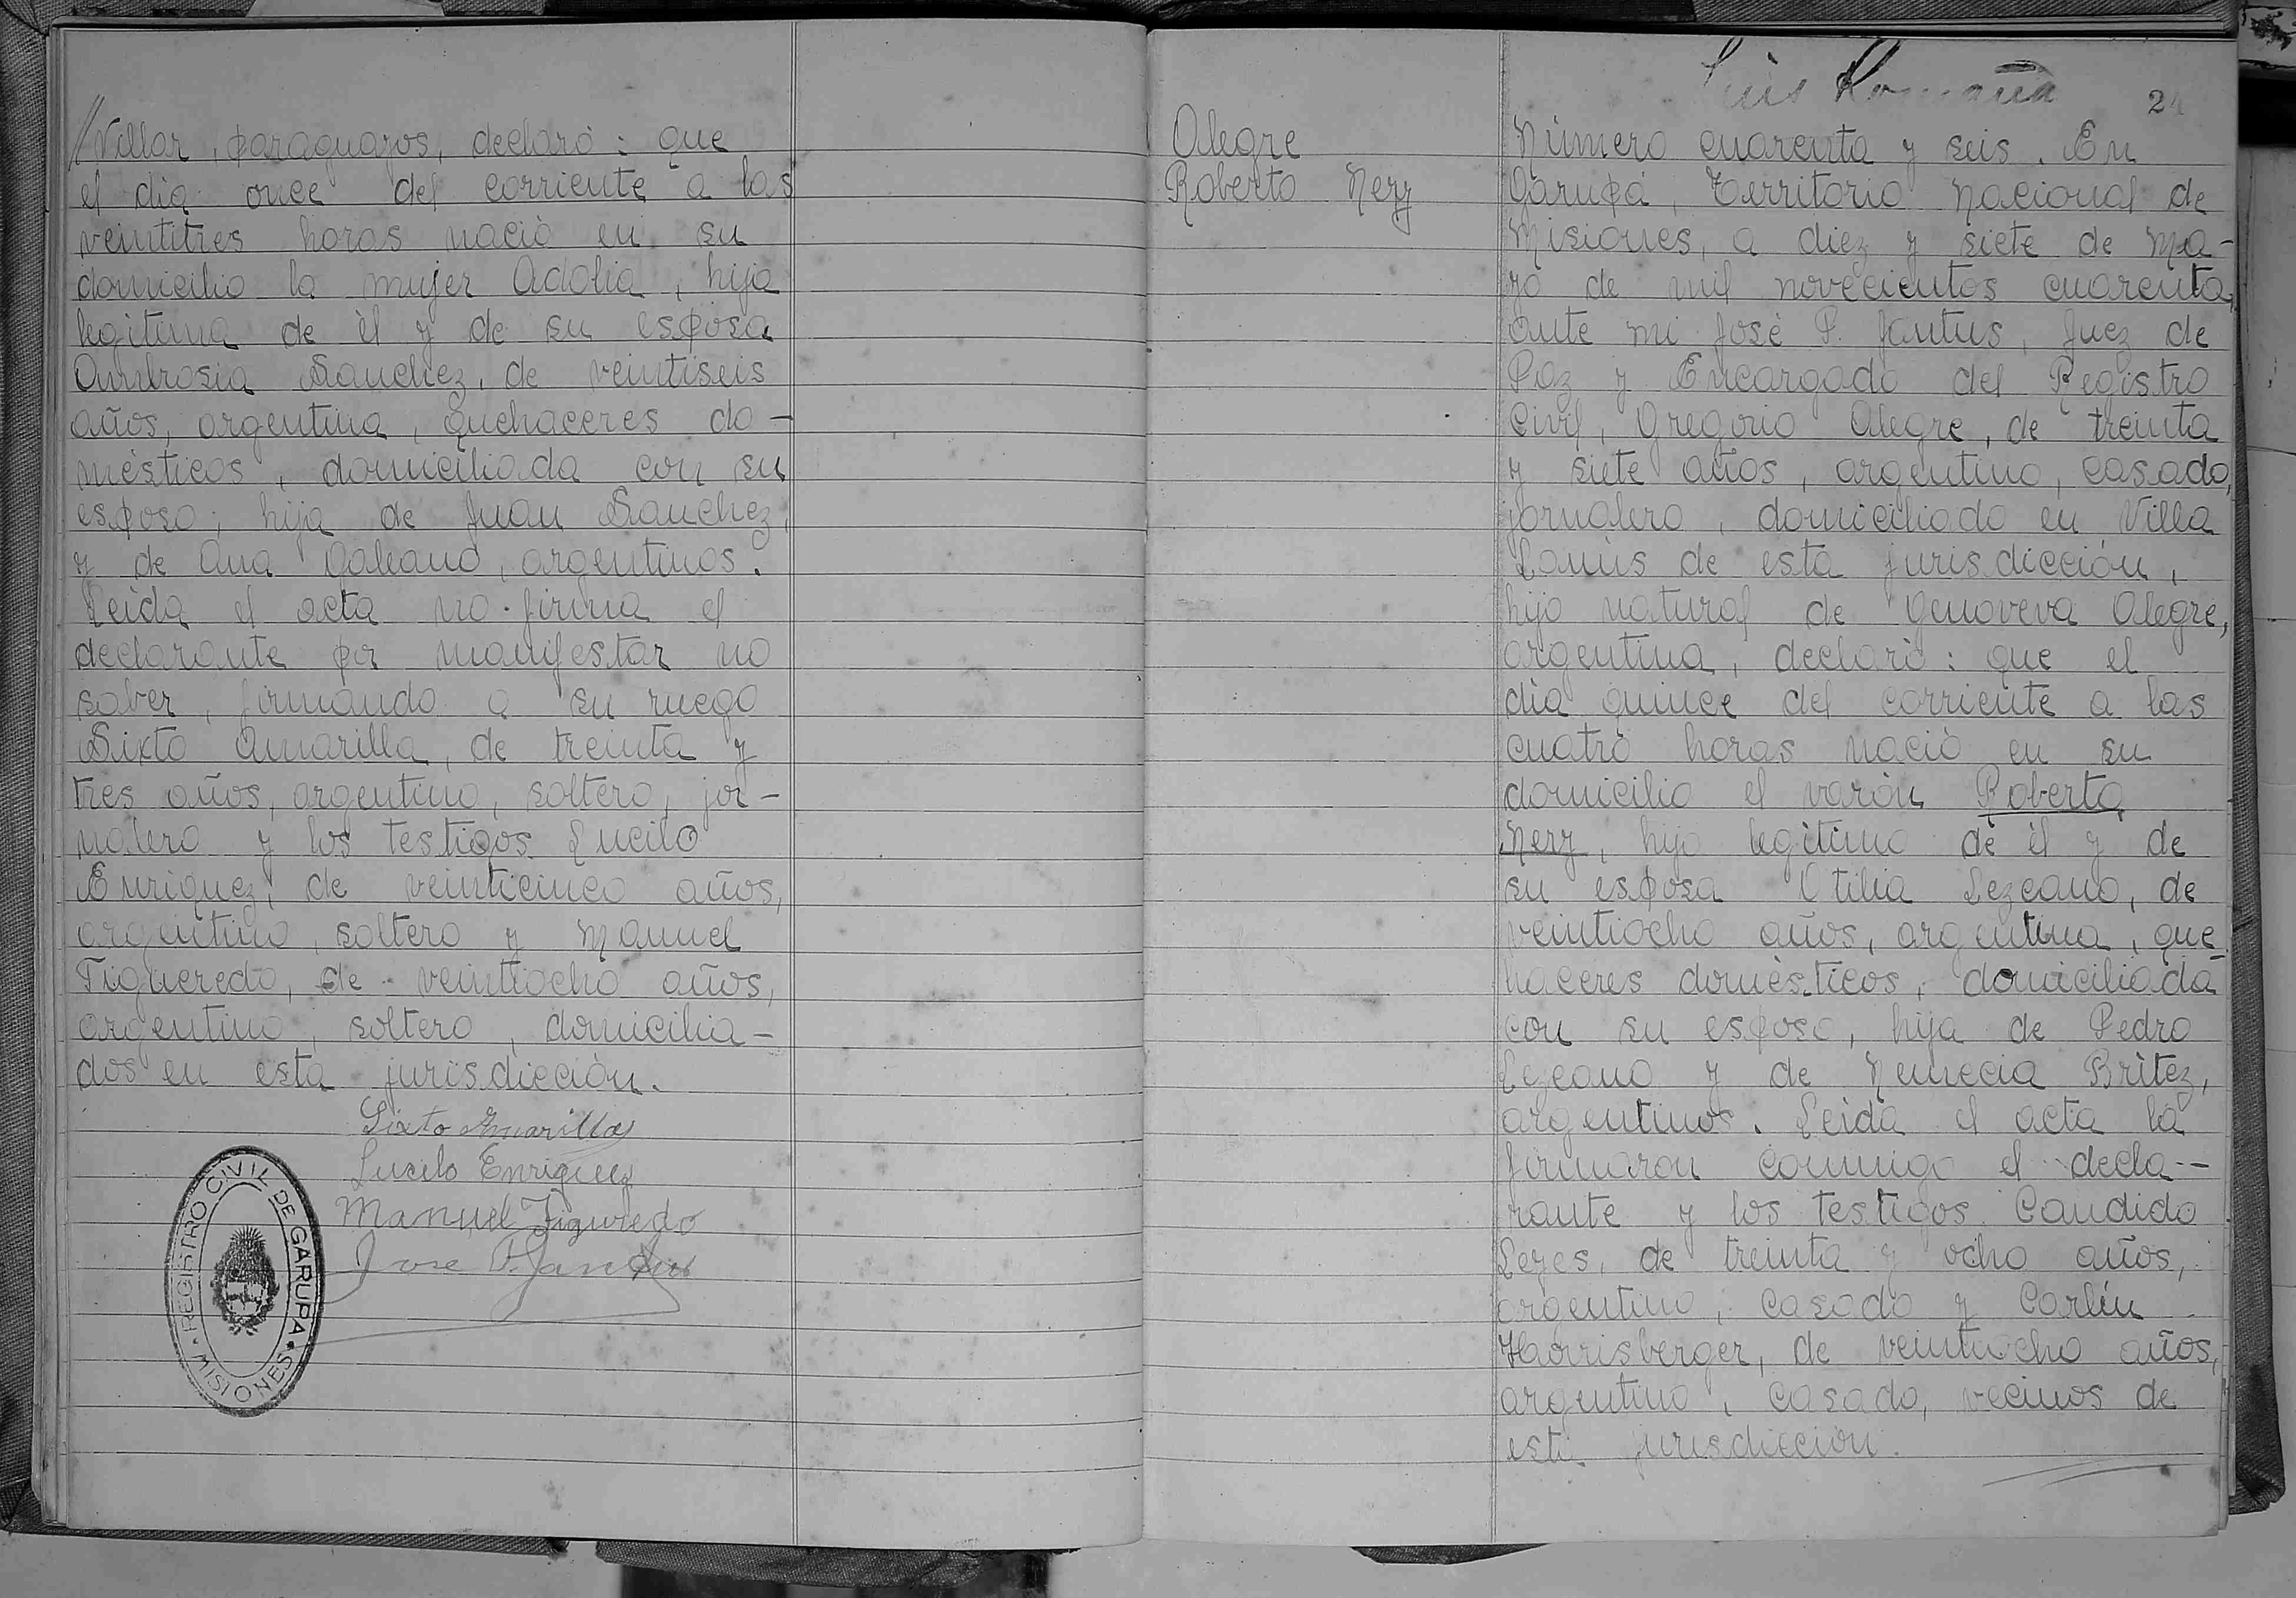 //Villar, paraguayos, declaró: que
el dia once del corriente a las
veintitres horas nació en su
domicilio la mujer Adolia, hija
legitima de èl y de su esposa
Ambrosia Sanchez, de veintiseis
años, argentina, quehaceres do-
mèsticos, domiciliada con su
esposo; hija de Juan Sanchez,
y de Ana Galeano, argentinos.
Leida el acta no firma el
declarante por manifestar no
saber, firmando a su ruego
Sixto Amarilla, de treinta y
tres años, argentino, soltero, jor-
nalero y los testigos Lucilo
Enriquez, de veinticinco años,
argentino, soltero y Manuel
Figueredo, de veintiocho años,
argentino, soltero, domicilia-
dos en esta jurisdicción.
Sixto Amarilla
Lucilo Enriquez
Manuel Figueredo
Jose P. Jantus
REGISTRO CIVIL DE GARUPA
MISIONES
Alegre
Roberto Nery
Luis
2
Nùmero cuarenta y seis. En
Garupá, Territorio Nacional de
Misiones, a diez y siete de Ma-
yo de mil novecientos cuarenta,
ante mi José P. Jantus, Juez de
Paz y Encargado del Registro
Civil, Gregorio Alegre, de treinta
y siete años, argentino, casado,
jornalero, domiciliado en Villa
Lanùs de esta jurisdicción,
hijo natural de Genoveva Alegre,
argentina, declaró: que el
dìa quince del corriente a las
cuatro horas nació en su
domicilio el varón Roberto
Nery, hijo legìtimo de èl y de
su esposa Otilia Lezcano, de
veintiocho años, argentina, que-
haceres domèsticos, domiciliada
con su esposo, hija de Pedro
Lezcano y de Nemecia Brìtez,
argentinos. Leida el acta la
firmaron conmigo el decla-
rante y los testigos Candido
Leyes, de treinta y ocho años,
argentino, casado y Carlìn
Harrisberger, de veintiocho años,
argentino, casado, vecinos de
esta jurisdicción.